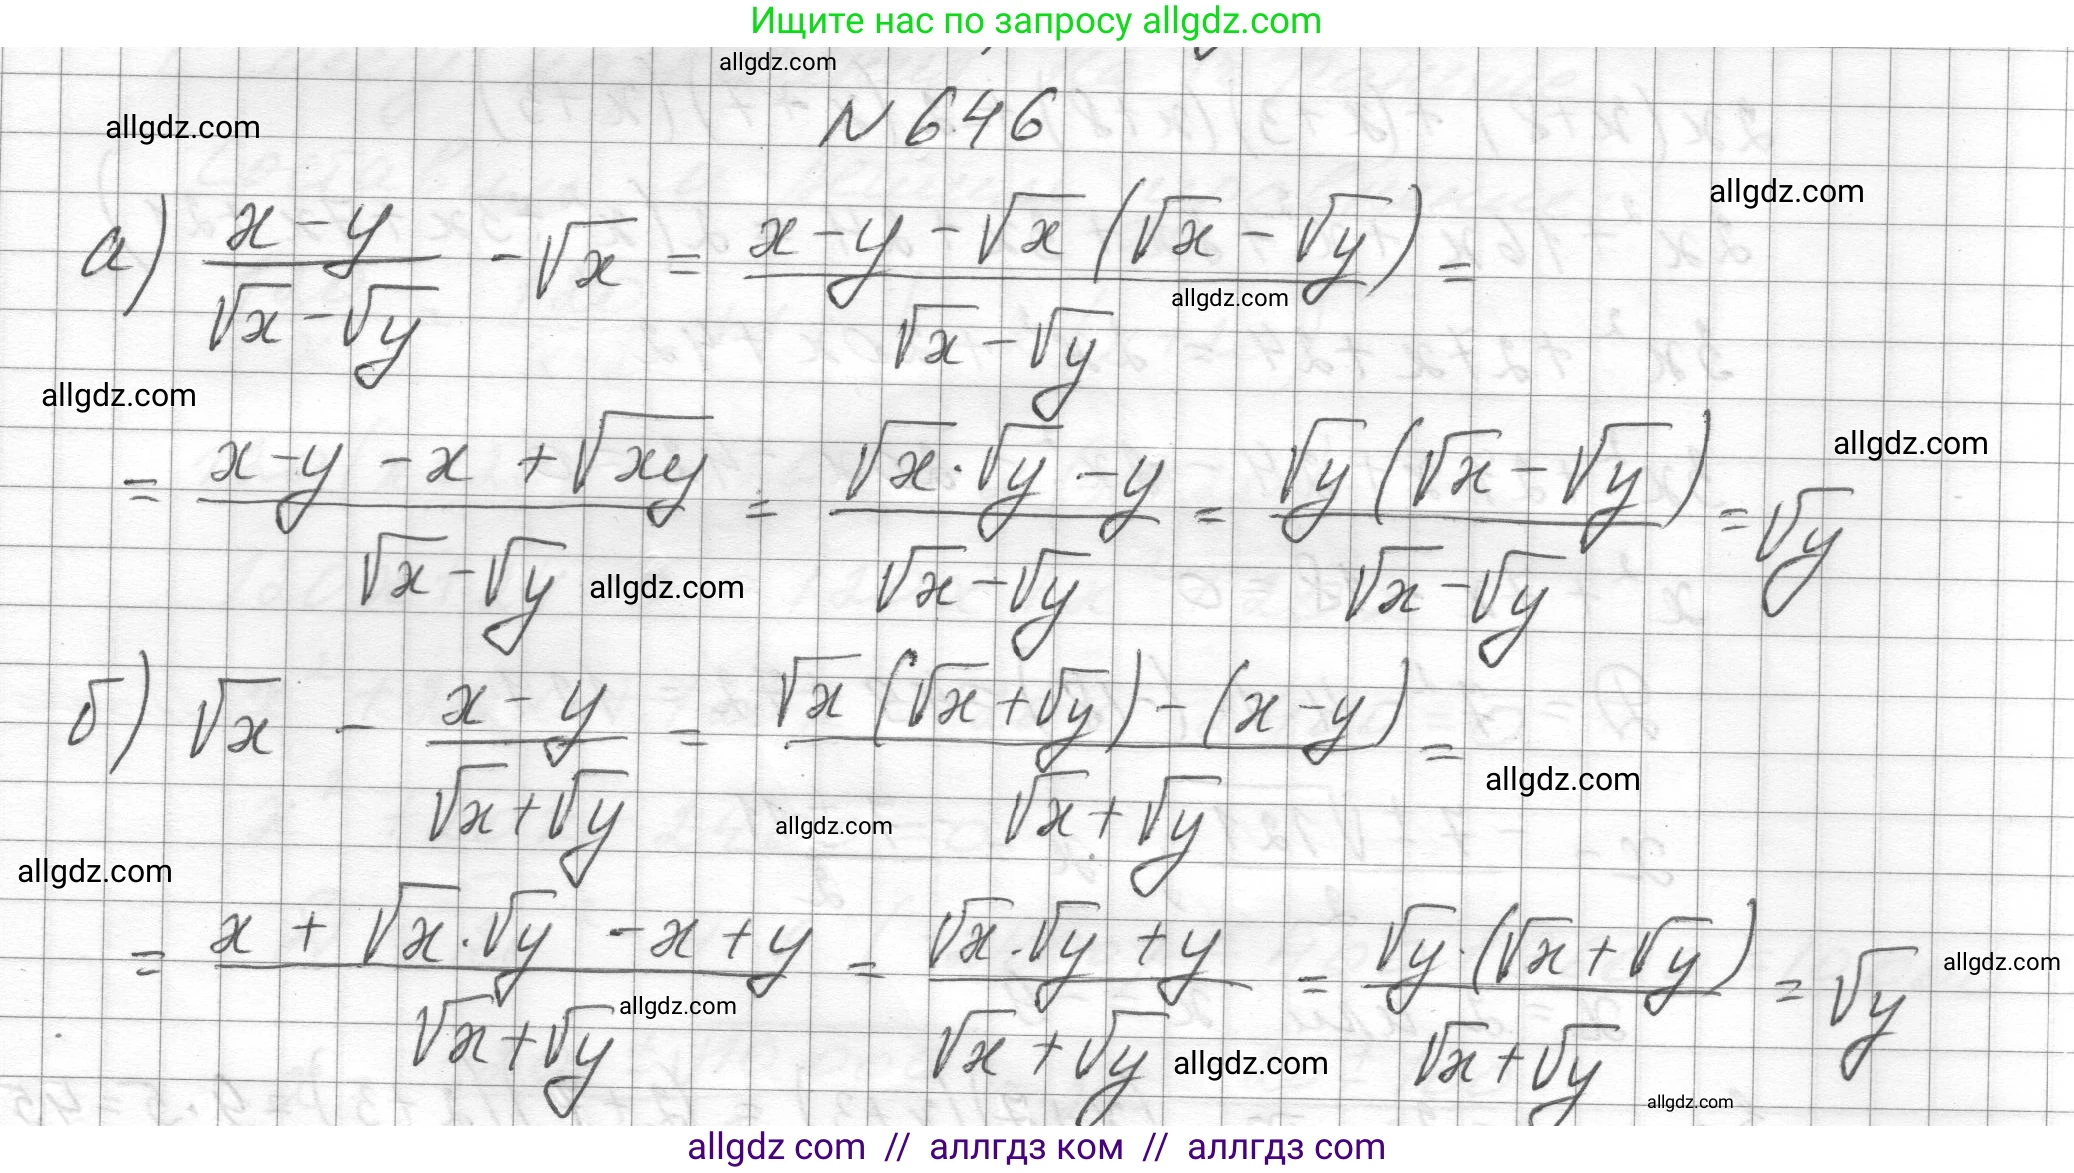 Ищите нас по запросу allgdz.com
allgdz.com
N 646
allgdz.com
allgdz.com
а) (x-y)/(√x-√y) - √x = (x-y-√x(√x-√y))/(√x-√y) =
allgdz.com
allgdz.com
allgdz.com
= (x-y-x+√xy)/(√x-√y) = (√x·√y-y)/(√x-√y) = (√y(√x-√y))/(√x-√y) = √y
allgdz.com
б) √x - (x-y)/(√x+√y) = (√x(√x+√y)-(x-y))/(√x+√y) =
allgdz.com
allgdz.com
allgdz.com
= (x+√x·√y-x+y)/(√x+√y) = (√x·√y+y)/(√x+√y) = (√y·(√x+√y))/(√x+√y) = √y
allgdz.com
allgdz.com
allgdz.com
allgdz.com
allgdz com // аллгдз ком // аллгдз com